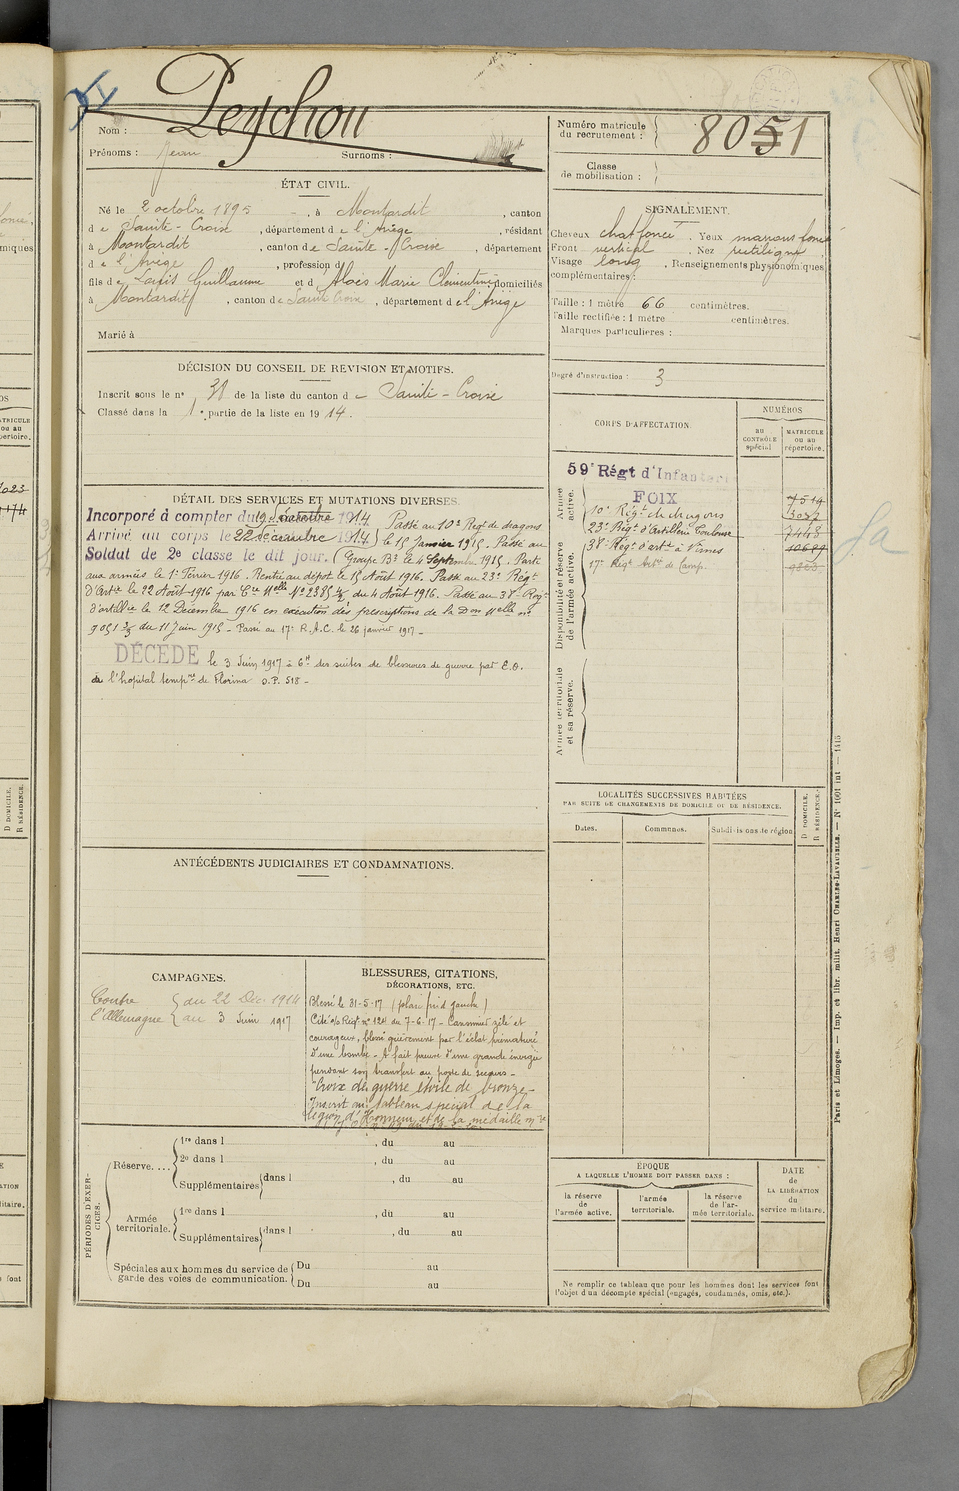 Peychou
Nom :
Prénoms : Jean Surnoms :
Numéro matricule
du recrutement : 8051
Classe
de mobilisation :
ÉTAT CIVIL.
Né le 2 octobre 1895, à Montardit, canton
de Sainte-Croix, département de l'Ariège, résidant
à Montardit, canton de Sainte-Croix, département
de l'Ariège, profession d
fils de Louis Guillaume et d'Aloès Marie Clémentine domiciliés
à Montardit, canton de Sainte Croix, département de l'Ariège
Marié à
SIGNALEMENT.
Cheveux chat foncé. Yeux marrons foncé
Front vertical. Nez rectiligne
Visage long. Renseignements physionomiques
complémentaires :
Taille : 1 mètre 66 centimètres.
Taille rectifiée : 1 mètre centimètres.
Marques particulières :
Degré d'instruction : 3
DÉCISION DU CONSEIL DE REVISION ET MOTIFS.
Inscrit sous le n° 38 de la liste du canton de Sainte-Croix
Classé dans la 1e partie de la liste en 1914.
CORPS D'AFFECTATION.
NUMÉROS
au
CONTRÔLE
spécial
MATRICULE
ou au
répertoire.
Armée
active.
59e Régt d'Infanterie
FOIX
10e Régt de dragons 3037
23e Régt d'Artillerie Toulouse 7448
38e Régt d'artie à Nimes 10689
17e Régt Artie de Camp.
Disponibilité et réserve
de l'armée active.
Armée territoriale
et sa réserve.
DÉTAIL DES SERVICES ET MUTATIONS DIVERSES.
Incorporé à compter du 19 décembre 1914 Passé au 10e Régt de dragons
Arrivé au corps le 22 décembre 1914 le 15 Janvier 1915. Passé au
Soldat de 2e classe le dit jour. (Groupe B3 le 4 Septembre 1915. Parti
aux armées le 1er Février 1916. Rentré au dépot le 15 Août 1916. Passé au 23e Régt
d'Artie le 22 Août 1916 par Cre Melle No 2385 1/2 du 4 Août 1916. Passé au 38e Régt
d'artillie le 12 Décembre 1916 en exécution des prescriptions de la Don Melle no
9051 3/2 du 11 Juin 1915 - Passé au 17e R.A.C. le 26 janvier 1917 -
DÉCÉDÉ le 3 Juin 1917 à 6h des suites de blessures de guerre par E.O.
de l'hopital tempre de Florina O.P. 518 -
LOCALITÉS SUCCESSIVES HABITÉES
PAR SUITE DE CHANGEMENTS DE DOMICILE OU DE RÉSIDENCE.
Dates. Communes. Subdivisions de région.
D DOMICILE.
R RÉSIDENCE.
ANTÉCÉDENTS JUDICIAIRES ET CONDAMNATIONS.
CAMPAGNES.
Contre du 22 Déc. 1914
l'Allemagne au 3 Juin 1917
BLESSURES, CITATIONS,
DÉCORATIONS, ETC.
Blessé le 31-5-17
Cité o/ Régt no 124 du 7-6-17 - Canonnier zélé et
courageux, blessé grièvement par l'éclat prématuré
d'une bombe - A fait preuve d'une grande énergie
pendant son transfert au poste de secours -
Croix de guerre étoile de bronze -
Inscrit au tableau spécial de la
légion d'Honneur et de la médaille mre
PÉRIODES D'EXERCICES.
Réserve....
1re dans l , du au
2e dans l , du au
Supplémentaires dans l , du au
Armée
territoriale.
1re dans l , du au
Supplémentaires dans l , du au
Spéciales aux hommes du service de
garde des voies de communication.
Du au
Du au
ÉPOQUE
A LAQUELLE L'HOMME DOIT PASSER DANS :
la réserve
de
l'armée active.
l'armée
territoriale.
la réserve
de l'armée territoriale.
DATE
de
LA LIBÉRATION
du
service militaire.
Ne remplir ce tableau que pour les hommes dont les services font
l'objet d'un décompte spécial (engagés, condamnés, omis, etc.).
Paris et Limoges. — Imp. et libr. milit. Henri CHARLES-LAVAUZELLE. — N° 1001 int — 1415